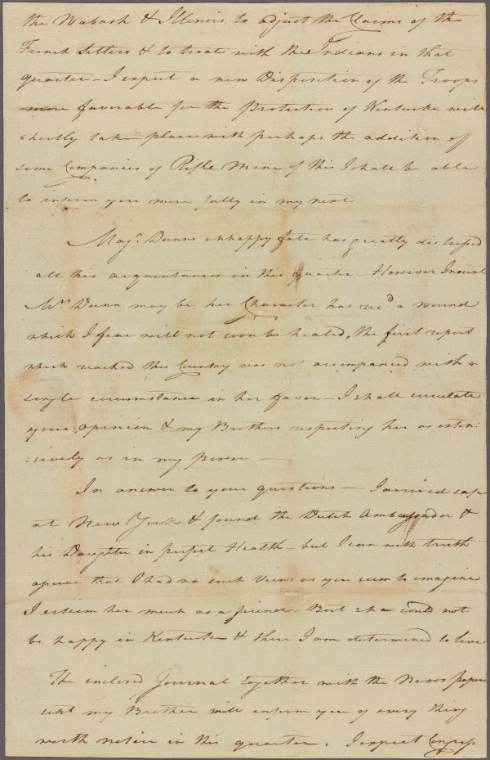 the Wabash & Illinois, to adjust the Claims of the
French Settlers & to treat with the Indians in that
quarter – I expect a new Disposition of the Troops
more favorable for the Protection of Kentucke will
shortly take place with perhaps the addition of
some Companies of Rifle Men of this I shall be able
to inform you more fully in my next
Majr. Dunns unhappy fate has greatly distressed
all his acquaintances in this quarter. However Innocent
Mrs Dunn may be her Character has recd a wound
which I fear will not soon be healed, the first report
which reached this Country was not accompanied with a
single circumstance in her favor – I shall circulate
your opinion & my Brothers respecting her as exten:
:sively as in my power —
In answer to your questions — I arrived safe
at New York & found the Dutch Ambassador &
his Daughter in perfect Health – but I can with truth
that I had no such Views as you seem to imagine
I esteem her much as a friend – But she could not
be happy in Kentucke & there I am determined to live
The inclosed Journal together with the News papers
sent my Brother will inform you of every thing
worth notice in this quarter. I expect Congress